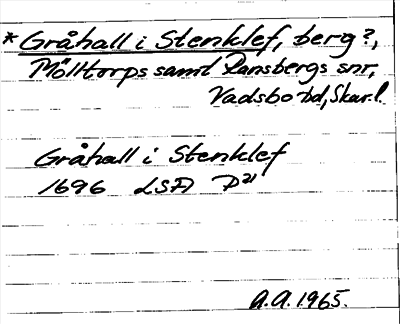 *Gråhall i Stenklef, berg?,
Mölltorps samt Ransbergs snr,
Vadsbo hd, Skar.l.
Gråhall i Stenklef
1696 LSA P21
A.A.1965.